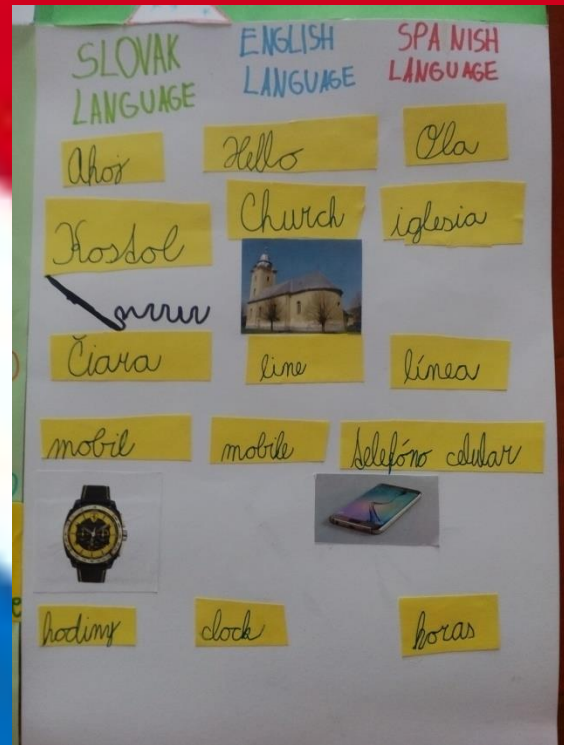 SLOVAK LANGUAGE
ENGLISH LANGUAGE
SPANISH LANGUAGE
Ahoj
Hello
Ola
Kostol
Church
iglesia
Čiara
line
línea
mobil
mobile
telefóno celular
hodiny
clock
horas